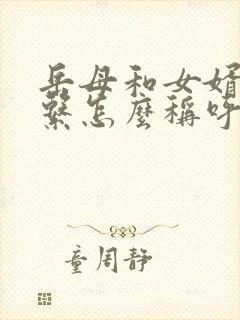 岳母和女婿
繫怎麼稱呼
童周靜